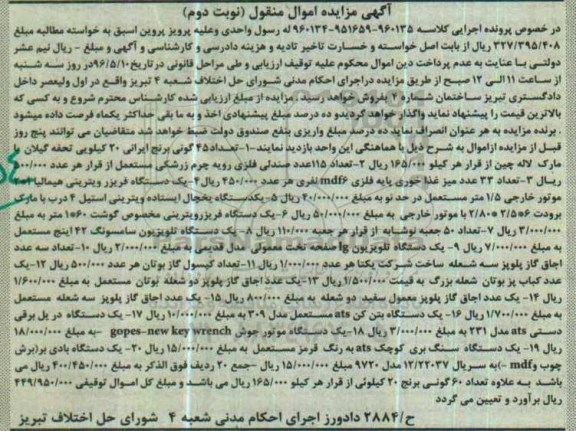 آگهی مزایده اموال منقول (نوبت دوم)
در خصوص پرونده اجرایی کلاسه ۹۶۰۱۳۵-۹۵۱۶۵۹-۹۶۰۱۳۴ له رسول واحدی وعلیه پرویز پروین اسبق به خواسته مطالبه مبلغ
۳۲۷/۳۹۵/۴۰۸ ریال از بابت اصل خواسته و خسارت تاخیر تادیه و هزینه دادرسی و کارشناسی و آگهی و مبلغ - ریال نیم عشر
دولتی با عنایت به عدم پرداخت دین اموال محکوم علیه توقیف ارزیابی و طی مراحل قانونی در تاریخ ۹۶/۵/۱۰در روز سه شنبه
از ساعت ۱۱ الی ۱۲ صبح از طریق مزایده دراجرای احکام مدنی شورای حل اختلاف شعبه ۴ تبریز واقع در اول ولیعصر داخل
دادگستری تبریز ساختمان شماره ۲ بفروش خواهد رسید . مزایده از مبلغ ارزیابی شده کارشناس محترم شروع و به کسی که
بالاترین قیمت را پیشنهاد نماید واگذار خواهم گردیدو ده درصد مبلغ پیشنهادی اخذ و به ما بقی حداکثر یکماه فرصت داده میشود
. برنده مزایده به هر عنوان انصراف نماید ده درصد مبلغ واریزی بنفع صندوق دولت ضبط خواهد شد متقاضیان می توانند پنج روز
قبل از مزایده ازاموال به شرح ذیل با هماهنگی این واحد بازدید نمایند-۱-تعداد۴۵ گونی برنج ایرانی ۲۰ کیلویی تحفه گیلان با
مارک لاله چین از قرار هر کیلو ۱۶۵/۰۰۰ ریال ۲-تعداد ۱۱۵عدد صندلی فلزی رویه چرم زرشکی مستعمل از قرار هر عدد
ریال ۳-تعداد ۳۳ عدد میز غذا خوری پایه فلزی mdf۶ نفری هر عدد ۴۵۰/۰۰۰ ریال ۴- یک دستگاه فریزر ویترینی هیمالیا
موتور خارجی ۱/۵ متر مستعمل در حد نو به مبلغ ۴۰/۰۰۰/۰۰۰ ریال ۵-یکدستگاه یخچال ایستاده ویترینی استیل ۴ درب با مارک
برودت ۶*۲/۵ * ۲/۸۰ با موتور خارجی به مبلغ ۵۰/۰۰۰/۰۰۰ ریال ۶-یک دستگاه فریزرویترینی مخصوص گوشت ۶۰*۱ متر به مبلغ
۳/۰۰۰/۰۰۰ ریال ۷-تعداد ۵۰ جعبه نوشابه از قرار هر جعبه ۱۱۰/۰۰۰ ریال ۸- یک دستگاه تلویزیون سامسونگ ۴۲ اینچ مستعمل
به مبلغ ۷/۰۰۰/۰۰۰ ریال ۹- یک دستگاه تلویزیون lg صفحه تخت معمولی مدل قدیمی به مبلغ ۲/۰۰۰/۰۰۰ ریال ۱۰-تعداد سه عدد
اجاق گاز پلوپز سه شعله ساخت شرکت یکتا هر عدد ۱/۰۰۰/۰۰۰ ریال ۱۱-تعداد کپسول گاز بوتان هر عدد ۵۰۰/۰۰۰ ریال ۱۲-یک
عدد کباب پز بوتان شعله بزرگ به قیمت ۱/۵۰۰/۰۰۰ ریال ۱۳-یک عدد اجاق گاز پلوپز دو شعله لوتان مستعمل به مبلغ ۱/۶۰۰/۰۰۰
ریال ۱۴- یک عدد اجاق گاز پلوپز معمول سفید دو شعله به مبلغ ۸۰۰/۰۰۰ ریال ۱۵- یک عدد اجاق گاز پلوپز سه شعله مستعمل
به مبلغ ۱/۷۰۰/۰۰۰ ریال ۱۶- یک دستگاه بتن کن ats مستعمل مدل ۳۰۹ به مبلغ ۱۰/۰۰۰/۰۰۰ ریال ۱۷- یک دستگاه دریل برقی
دستی ats مدل ۲۳۱ به مبلغ ۳/۰۰۰/۰۰۰ ریال ۱۸-یک دستگاه موتور جوش gopes-new key wrench -به مبلغ ۱۸/۰۰۰/۰۰۰
ریال ۱۹- یک دستگاه سنگ بری کوچک ats به رنگ قرمز مستعمل به مبلغ ۱۵/۰۰۰/۰۰۰ ریال ۲۰- یک دستگاه بادی بر(برش
چوب وmdf -)به سریال ۱۲/۲۲۰۳۷ مدل ۹۷۲۰ مبلغ ۱۵/۰۰۰/۰۰۰ ریال -جمع ۲۰ ردیف فوق الذکر به مبلغ ۴۰۰/۴۵۰/۰۰۰ ریال می
باشد به علاوه تعداد ۶۰ گونی برنج ۲۰ کیلوئی از قرار هر کیلو ۱۶۵/۰۰۰ ریال می باشد و مبلغ کل اموال توقیفی ۴۴۹/۹۵۰/۰۰۰
ریال برآورد و تعیین می گردد
ح/۲۸۸۴ دادورز اجرای احکام مدنی شعبه ۴ شورای حل اختلاف تبریز